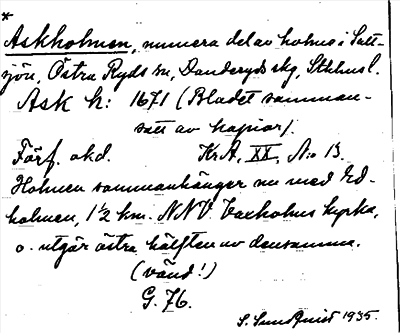 *
Askholmen, numera del av holme i Salt-
sjön, Östra Ryds sn, Danderyds skg, Sthlms l.
Ask h: 1671 (Bladet samman-
satt av kopior).
Förf. okd. Kr.A, XX, N:o 13.
Holmen sammanhänger nu med Ed-
holmen, 1½ km. NNV. Vaxholms kyrka,
o. utgör östra hälften av densamma.
(vänd!)
G. 76.
S. Sundquist 1935.